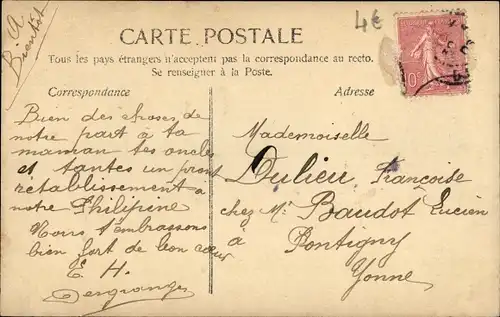 A
Bientôt
4€
CARTE POSTALE
Tous les pays étrangers n'acceptent pas la correspondance au recto.
Se renseigner à la Poste.
Correspondance
Adresse
Bien des choses de
notre part à ta
maman tes oncles
et tantes un pront
rétablissement à
notre Philipine
Nous t'embrassons
bien fort de bon cœur
E. H.
Desgranges
Mademoiselle
Dulieu Françoise
chez Mr Baudot Lucien
à
Pontigny
Yonne
10c